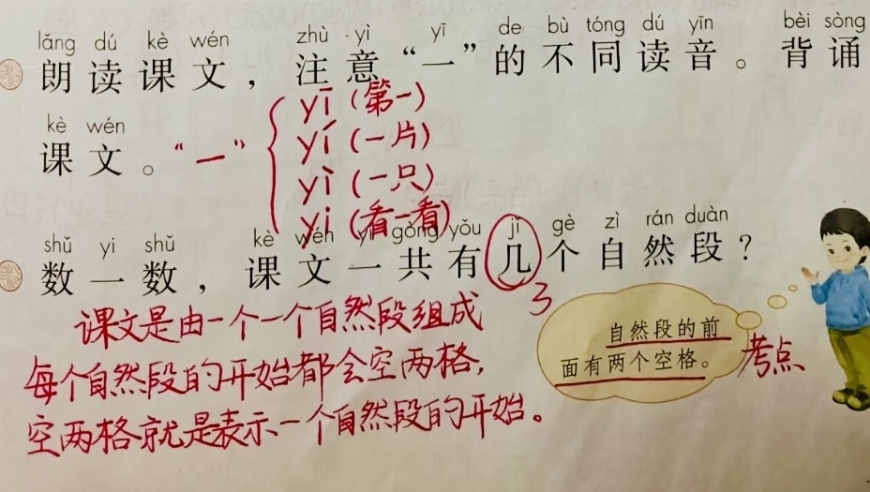 lǎng dú kè wén zhù yì yī de bù tóng dú yīn bèi sòng
朗读课文，注意“一”的不同读音。背诵
kè wén
课文。“一” yī（第一）
yí（一片）
yì（一只）
yi（看一看）
shǔ yi shǔ kè wén yí gòng yǒu jǐ gè zì rán duàn
数一数，课文一共有几个自然段？
3
课文是由一个一个自然段组成
每个自然段的开始都会空两格，
空两格就是表示一个自然段的开始。
自然段的前
面有两个空格。
考点